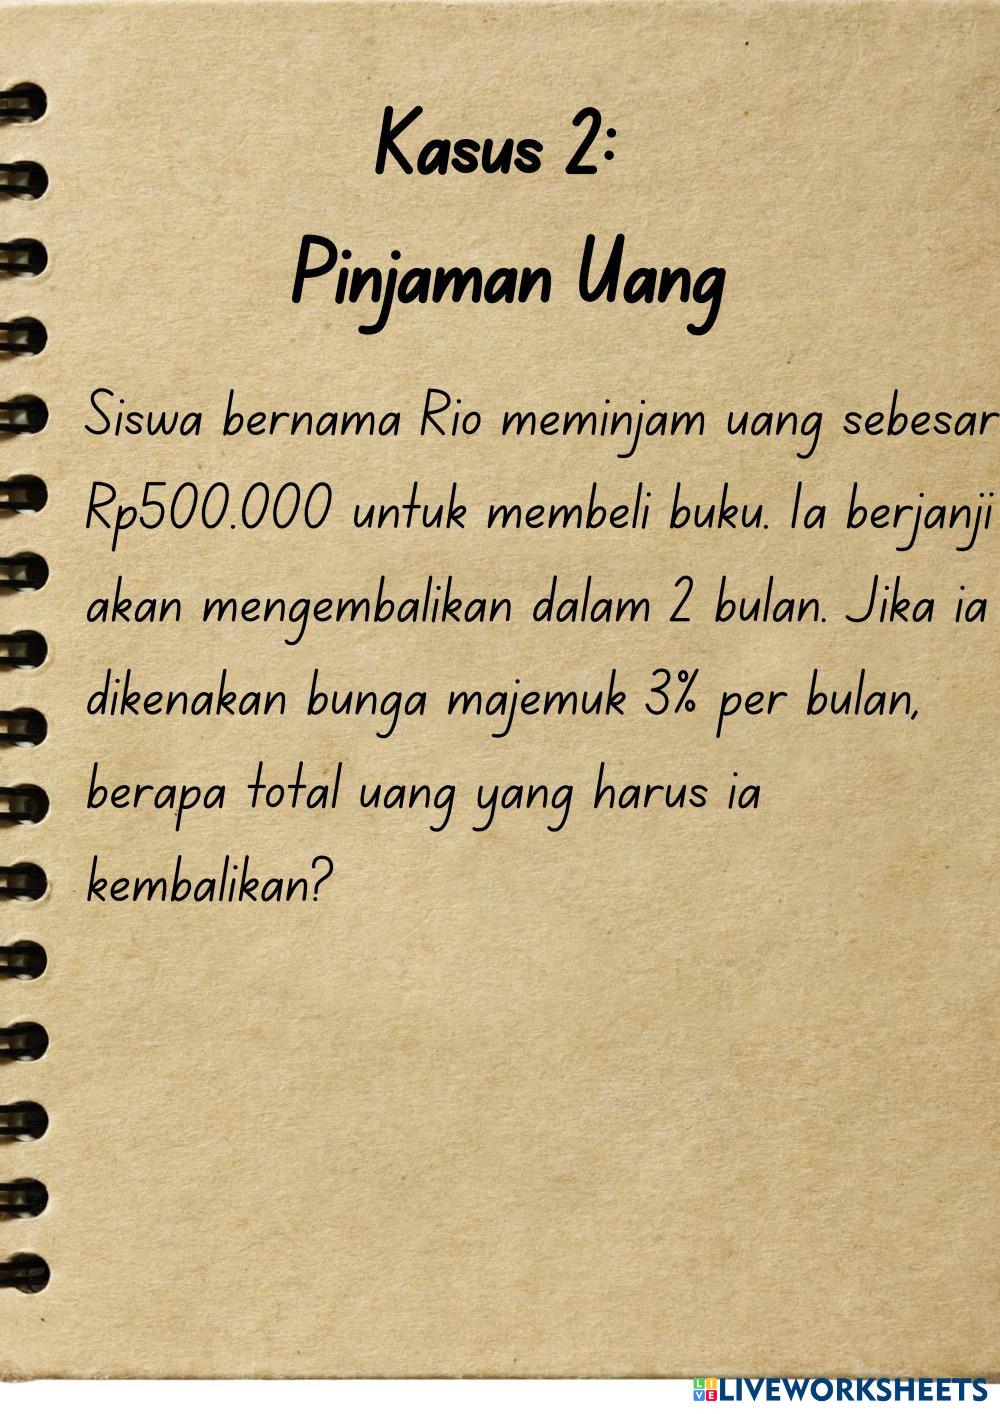 Kasus 2:
Pinjaman Uang
Siswa bernama Rio meminjam uang sebesar
Rp500.000 untuk membeli buku. Ia berjanji
akan mengembalikan dalam 2 bulan. Jika ia
dikenakan bunga majemuk 3% per bulan,
berapa total uang yang harus ia
kembalikan?
LIVE LIVEWORKSHEETS